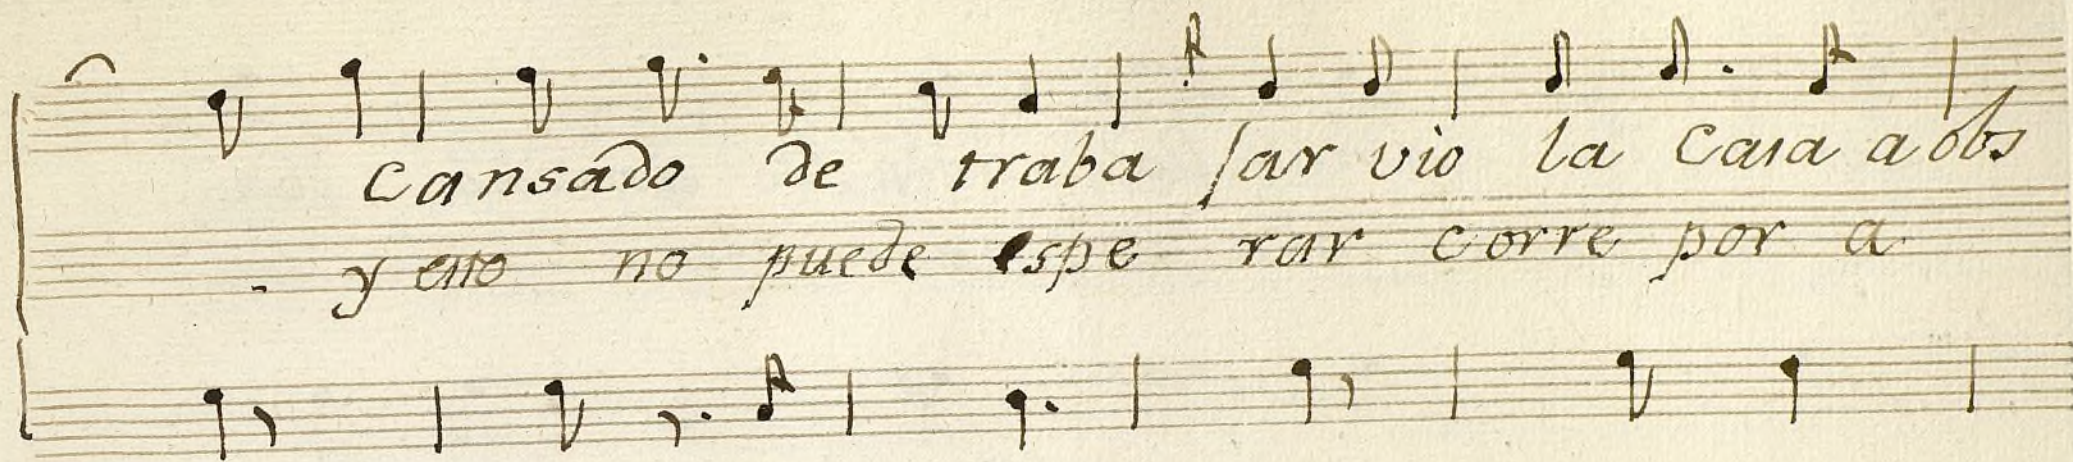 cansado de traba jar vio la casa a obs
y esto no puede espe rar corre por a